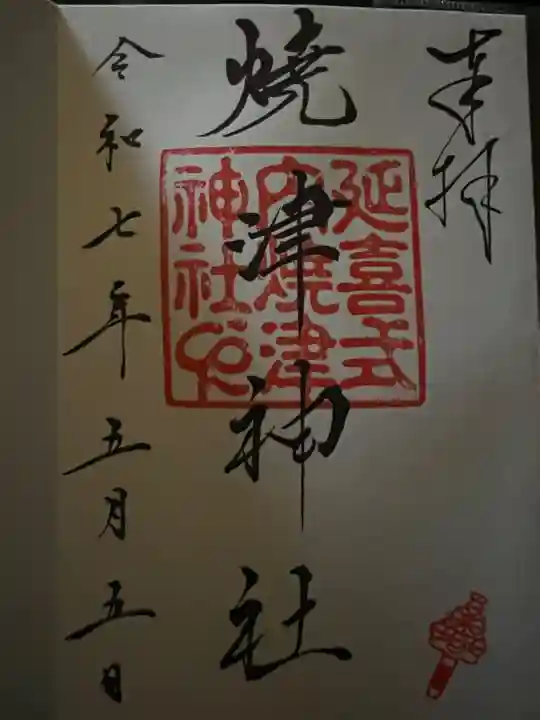 奉拝
燒津神社
延喜式
内燒津
神社印
令和七年五月五日